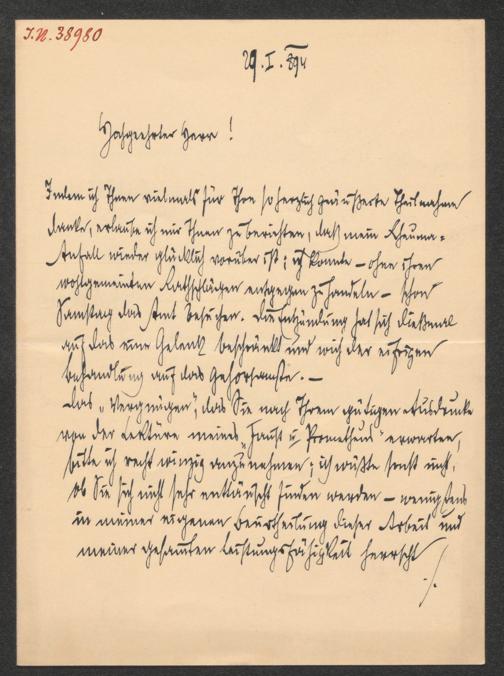 J.N. 38980
29. I. 894
Hochgeehrter Herr!
Indem ich Ihnen vielmals für Ihre so herzlich geäußerte Theilnahme
danke, erlaube ich mir Ihnen zu berichten, daß mein Rheuma=
Anfall wieder glücklich vorüber ist; ich konnte – ohne Ihren
wohlgemeinten Rathschlägen entgegen zu handeln – schon
Samstag das Amt besuchen. Die Entzündung hat sich dießmal
auf das eine Gelenk beschränkt und wich der eifrigen
Behandlung auf das Gehorsamste. –
Das „Vergnügen“, das Sie nach Ihrem gütigen Ausdrucke
von der Lektüre meines „Faust u Prometheus“ erwarten,
bitte ich recht winzig anzunehmen; ich wüßte sonst nicht,
ob Sie sich nicht sehr enttäuscht finden werden – wenigstens
in meiner eigenen Beurtheilung dieser Arbeit und
meiner gesamten Leistungsfähigkeit herrscht
./.